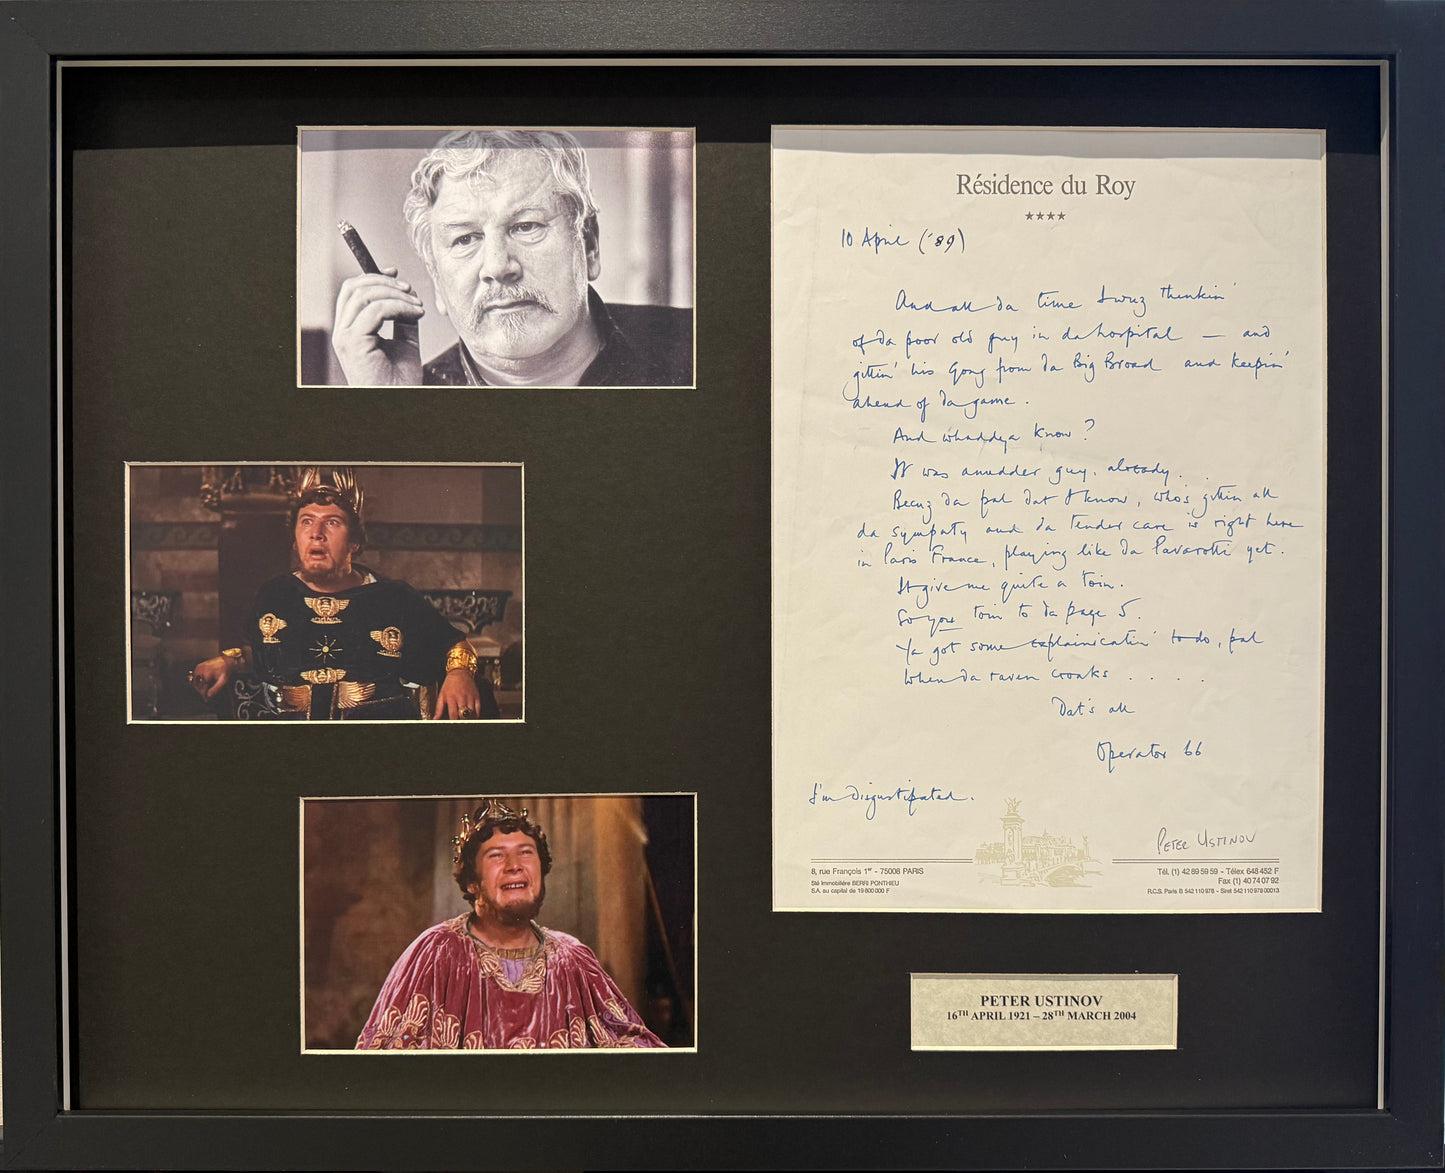 Résidence du Roy
★★★★
10 April ('89)
And all da time I wuz thinkin'
of da poor old guy in da hospital — and
gittin' his gong from da Big Broad and keepin'
ahead of da game.
And whaddya know?
It was amudder guy, already . .
Becuz da pal dat I know, who's gittin all
da sympaty and da tender care is right here
in Paris France, playing like da Pavarotti yet.
It give me quite a toin.
So you toin to da page 5.
Ya got some explainicatin' to do, pal
When da raven croaks . . . . .
Dat's all
Operator 66
I'm Disgustipated.
PETER USTINOV
8, rue François 1er - 75008 PARIS
Sté Immobilière BERRI PONTHIEU
S.A. au capital de 19 800 000 F
Tél. (1) 42 89 59 59 - Télex 648 452 F
Fax (1) 40 74 07 92
R.C.S. Paris B 542 110 978 - Siret 542 110 978 00013
PETER USTINOV
16TH APRIL 1921 – 28TH MARCH 2004